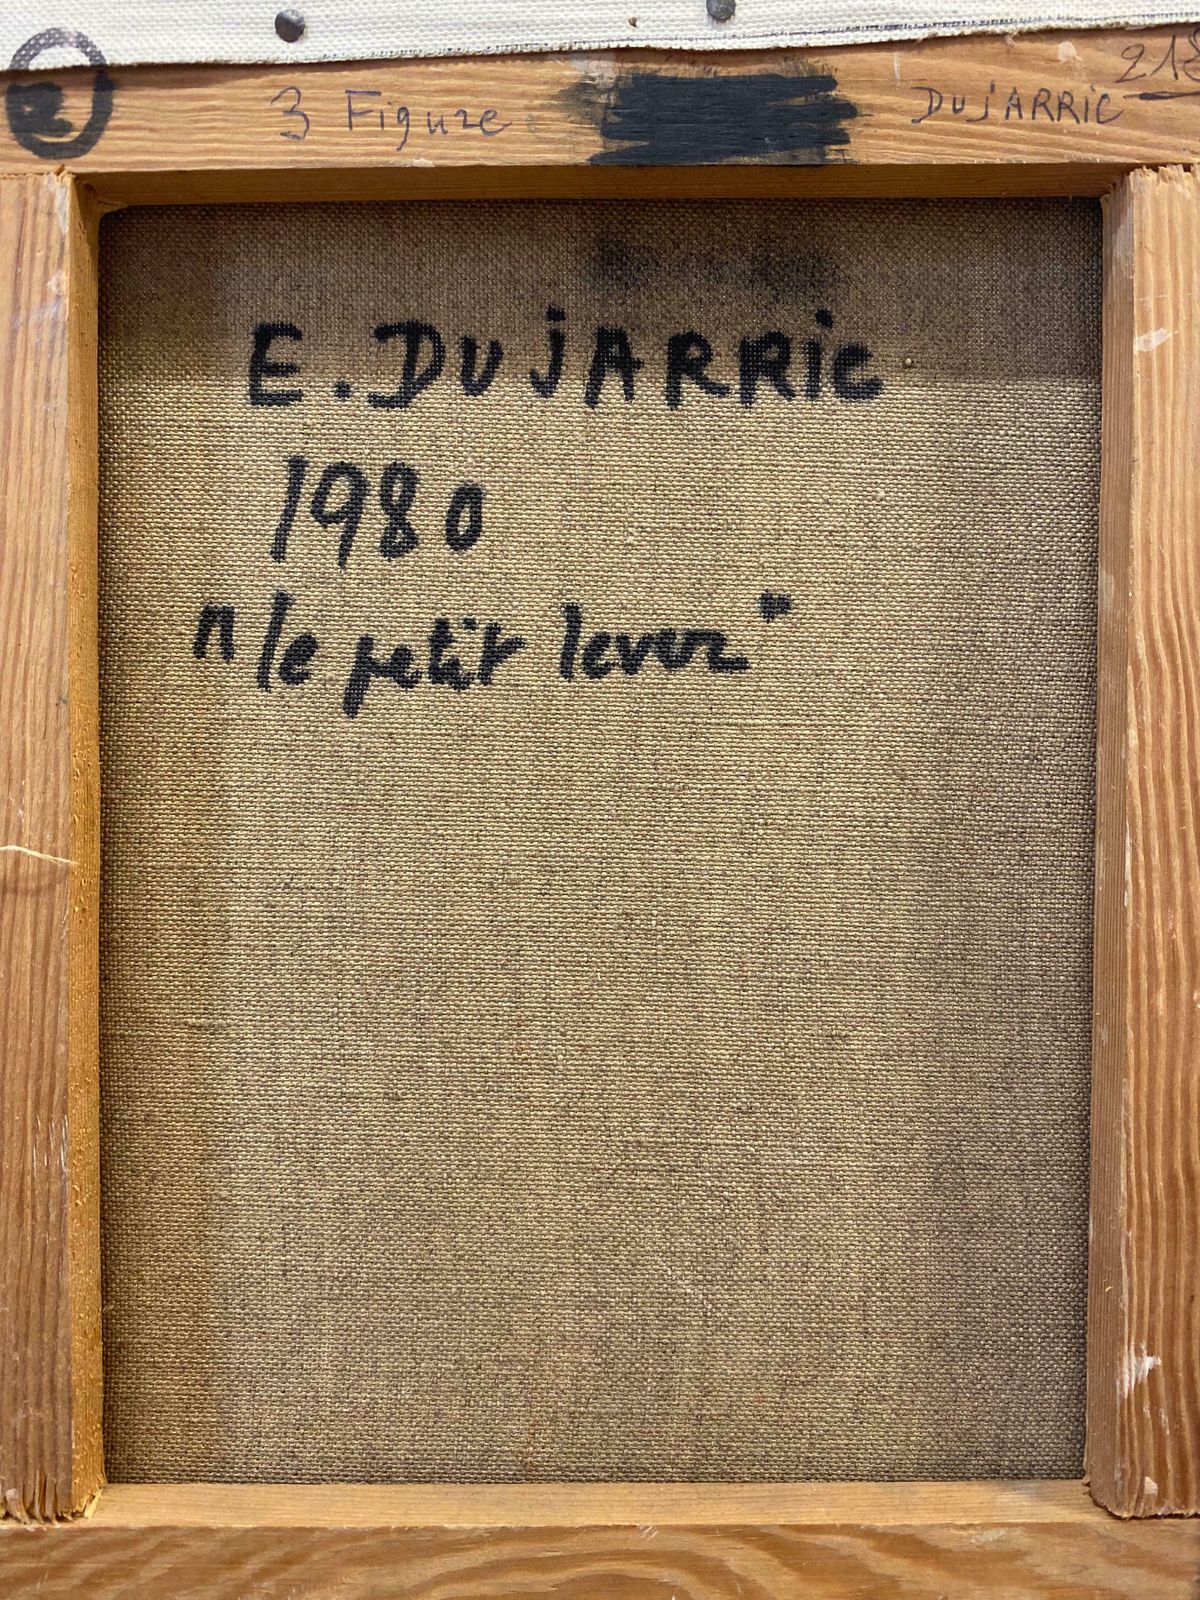 3 Figure
DUjARRIC
E. DUjARRic
1980
"le petit lever"